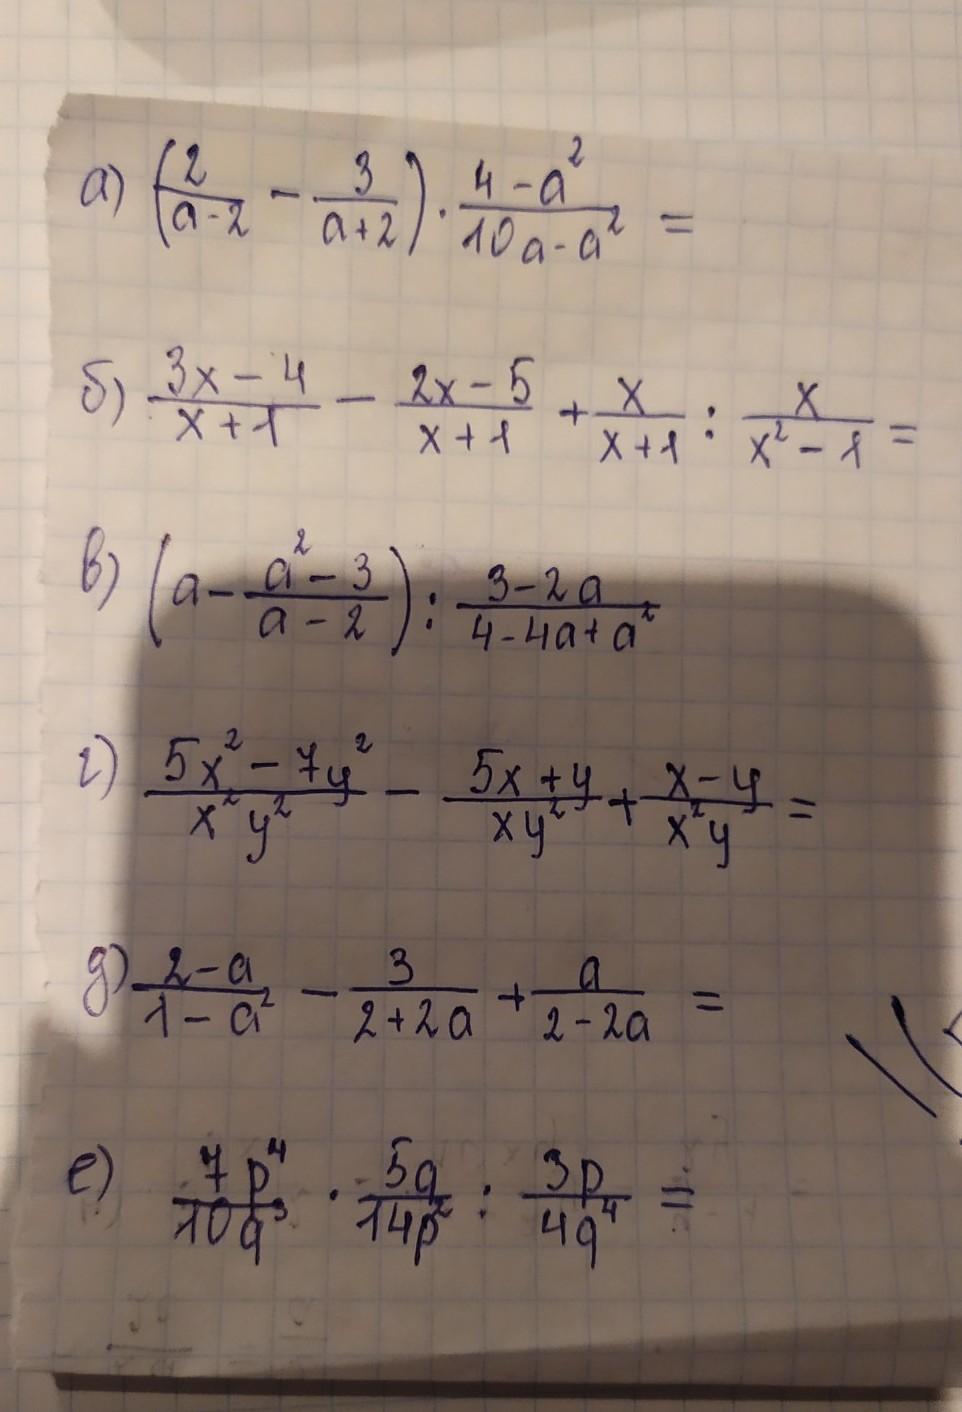 а) (2/(a-2) - 3/(a+2)) · (4-a²)/(10a-a²) =
б) (3x-4)/(x+1) - (2x-5)/(x+1) + x/(x+1) : x/(x²-1) =
в) (a - (a²-3)/(a-2)) : (3-2a)/(4-4a+a²)
г) (5x²-7y²)/(x²y²) - (5x+y)/(xy²) + (x-y)/(x²y) =
д) (2-a)/(1-a²) - 3/(2+2a) + a/(2-2a) =
е) 7p⁴/10q³ · 5q/14p² : 3p/4q⁴ =